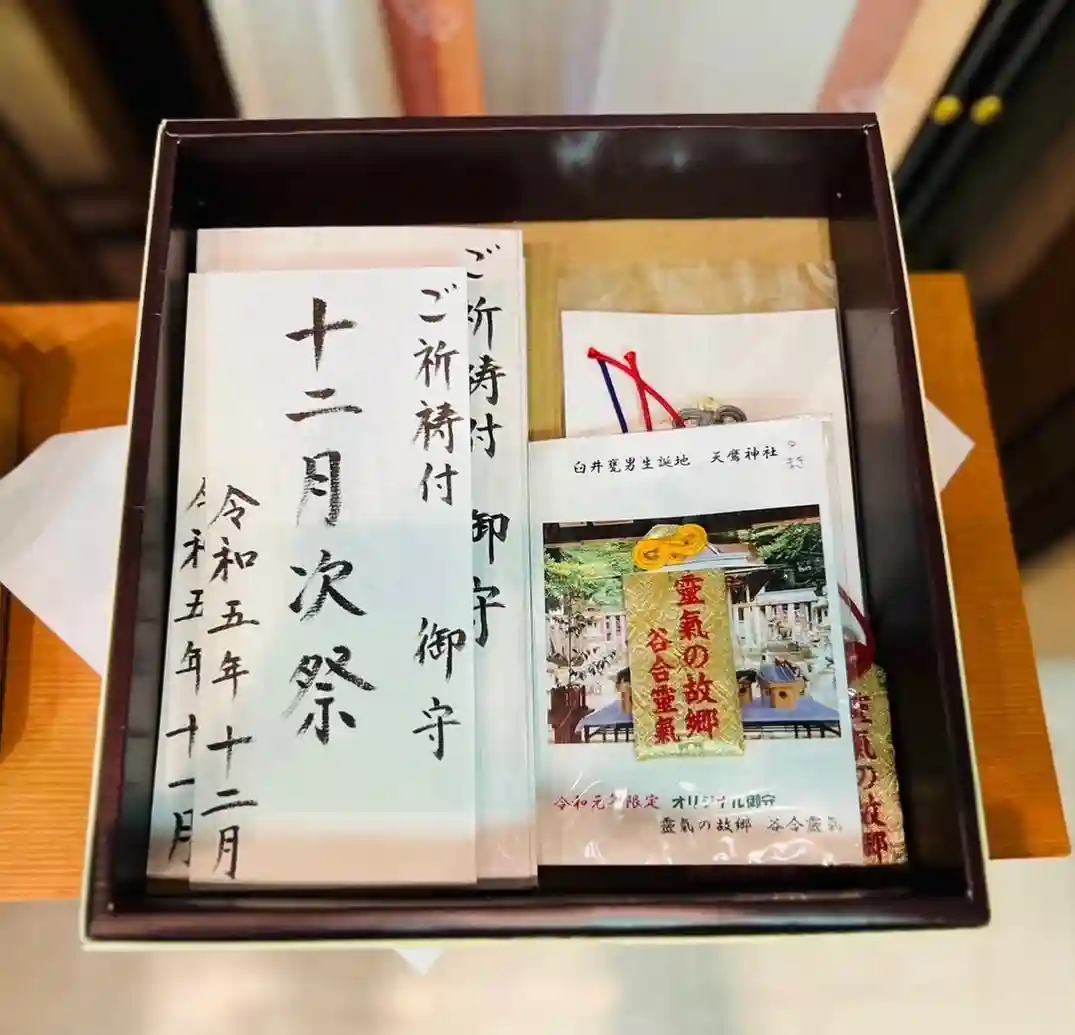 ご祈祷付 御守
十二月次祭
令和五年 十二月
ご祈祷付 御守
令和五年 十一月
臼井甕男生誕地 天鷹神社
靈氣の故郷
谷合靈氣
令和元年限定 オリジナル御守
靈氣の故郷 谷合靈氣
靈氣の故郷